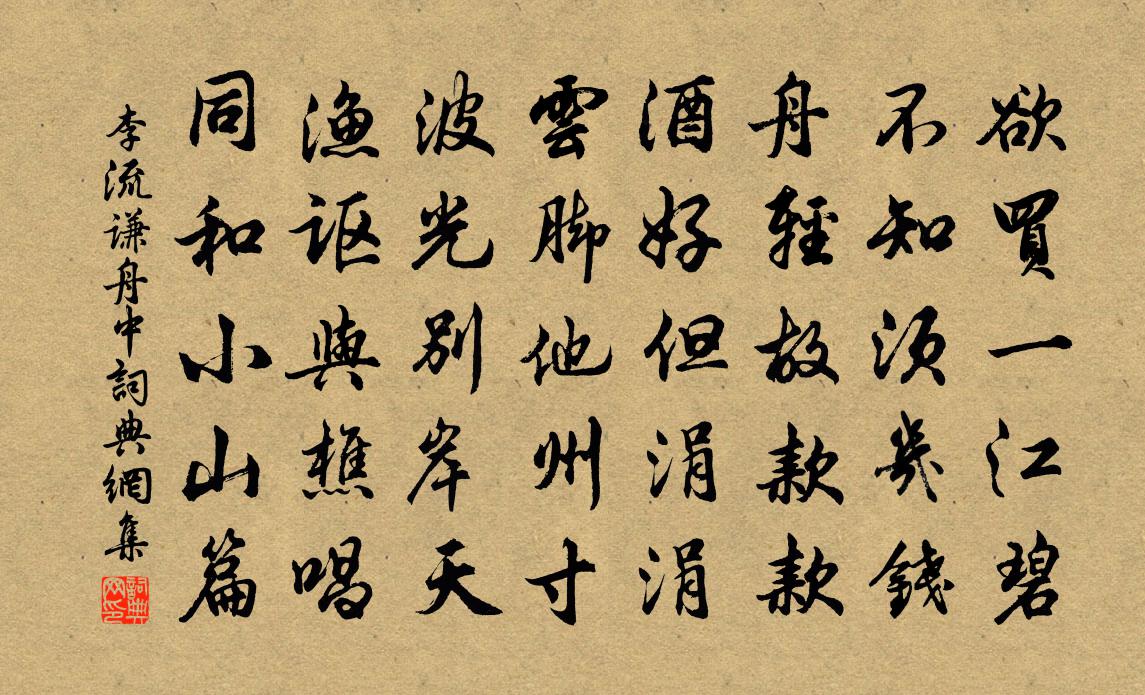 欲買一江碧
不知須幾錢
舟輕故款款
酒好但涓涓
雲脚他州寸
波光别岸天
漁謳與樵唱
同和小山篇
李流謙舟中詞典網集
詞典网印